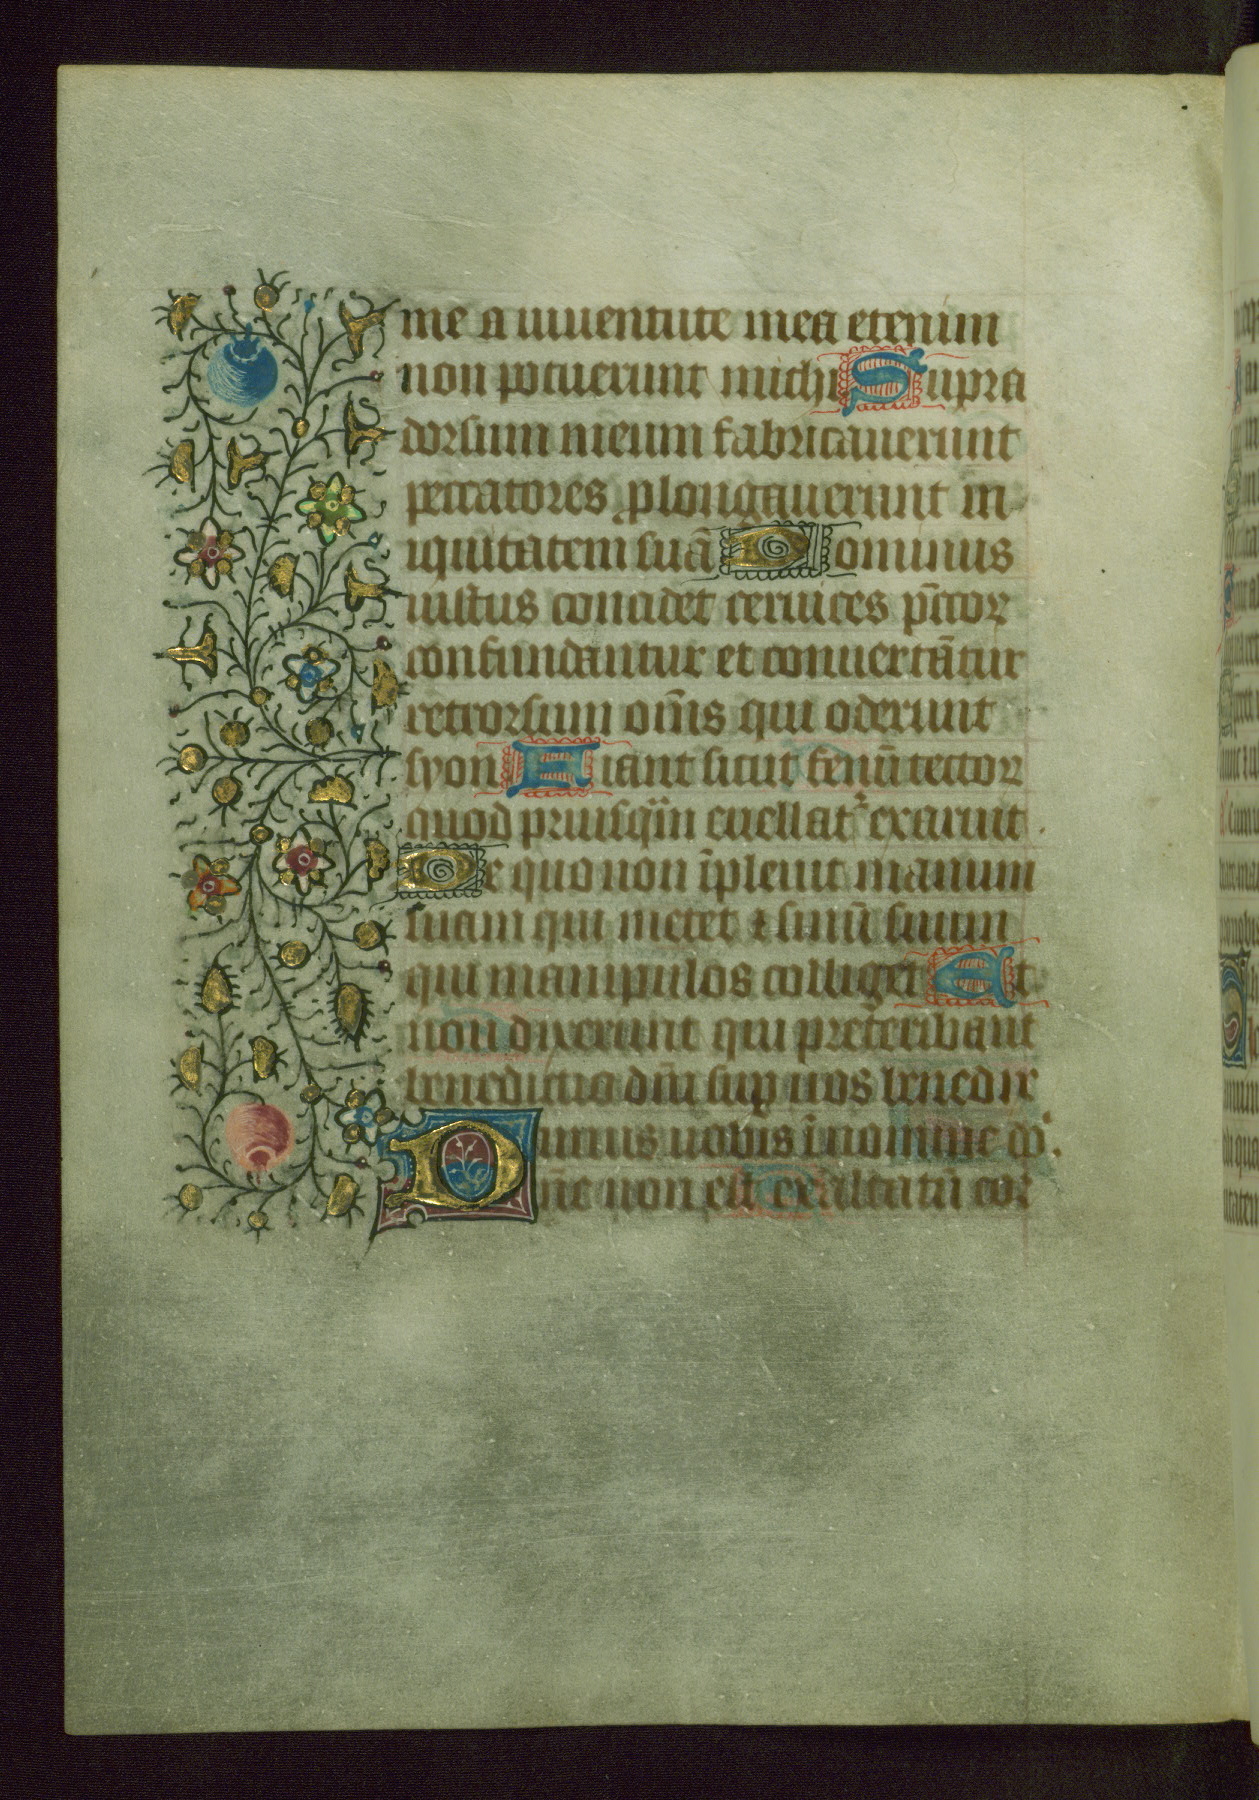 me a iuuentute mea etenim
non potuerunt michi Supra
dorsum meum fabricauerunt
peccatores plongauerunt in
iquitatem suā Dominus
iustus concidet ceruices pc̄tor
confundantur et conuertātur
retrorsum om̄s qui oderunt
syon Fiant sicut fenū tector
quod priusq̄m euellat᷑ exaruit
De quo non īpleuit manum
suam qui metet ⁊ sinū suum
qui manipulos colliget Et
non dixerunt qui preteribant
benedictio dn̄i sup uos benedix
imus uobis ī nomine do
Dn̄e non est exaltatū cor